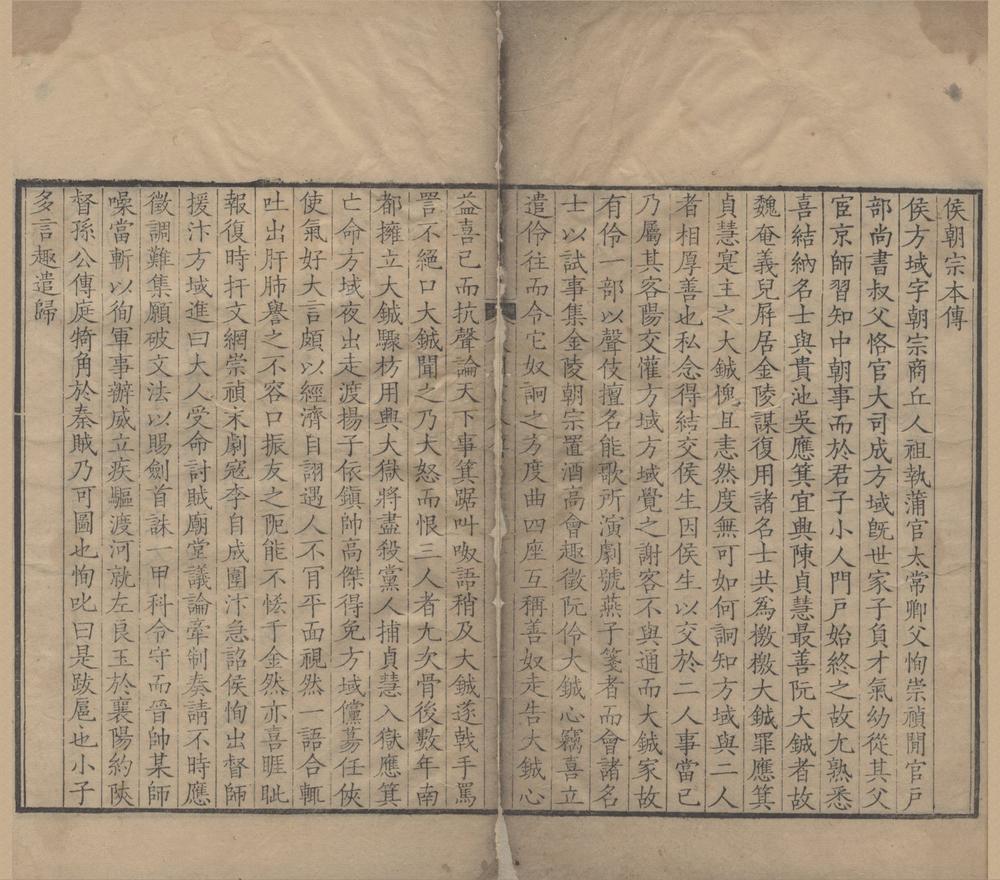 侯朝宗本傳
侯方域字朝宗商丘人祖執蒲官太常卿父恂崇禎間官戶
部尚書叔父恪官大司成方域旣世家子負才氣幼從其父
宦京師習知中朝事而於君子小人門戶始終之故尤熟悉
喜結納名士與貴池吳應箕宜興陳貞慧最善阮大鋮者故
魏奄義兒屛居金陵謀復用諸名士共為檄檄大鋮罪應箕
貞慧寔主之大鋮愧且恚然度無可如何詗知方域與二人
者相厚善也私念得結交侯生因侯生以交於二人事當已
乃屬其客陽交懽方域方域覺之謝客不與通而大鋮家故
有伶一部以聲伎擅名能歌所演劇號燕子箋者而會諸名
士以試事集金陵朝宗置酒高會趣徵阮伶大鋮心竊喜立
遣伶往而令它奴詗之方度曲四座互稱善奴走告大鋮心
益喜已而抗聲論天下事箕踞叫呶語稍及大鋮遂戟手罵
詈不絕口大鋮聞之乃大怒而恨三人者尤次骨後數年南
都擁立大鋮驟枋用興大獄將盡殺黨人捕貞慧入獄應箕
亡命方域夜出走渡揚子依鎮帥高傑得免方域儻蕩任俠
使氣好大言頗以經濟自詡遇人不肎平面視然一語合輒
吐出肝肺譽之不容口振友之阨能不恡千金然亦喜睚眦
報復時扞文網崇禎末劇寇李自成圍汴急詔侯恂出督師
援汴方域進曰大人受命討賊廟堂議論牽制奏請不時應
徵調難集願破文法以賜劍首誅一甲科令守而晉帥某師
噪當斬以徇軍事辦威立疾驅渡河就左良玉於襄陽約陝
督孫公傳庭犄角於秦賊乃可圖也恂叱曰是跋扈也小子
多言趣遣歸